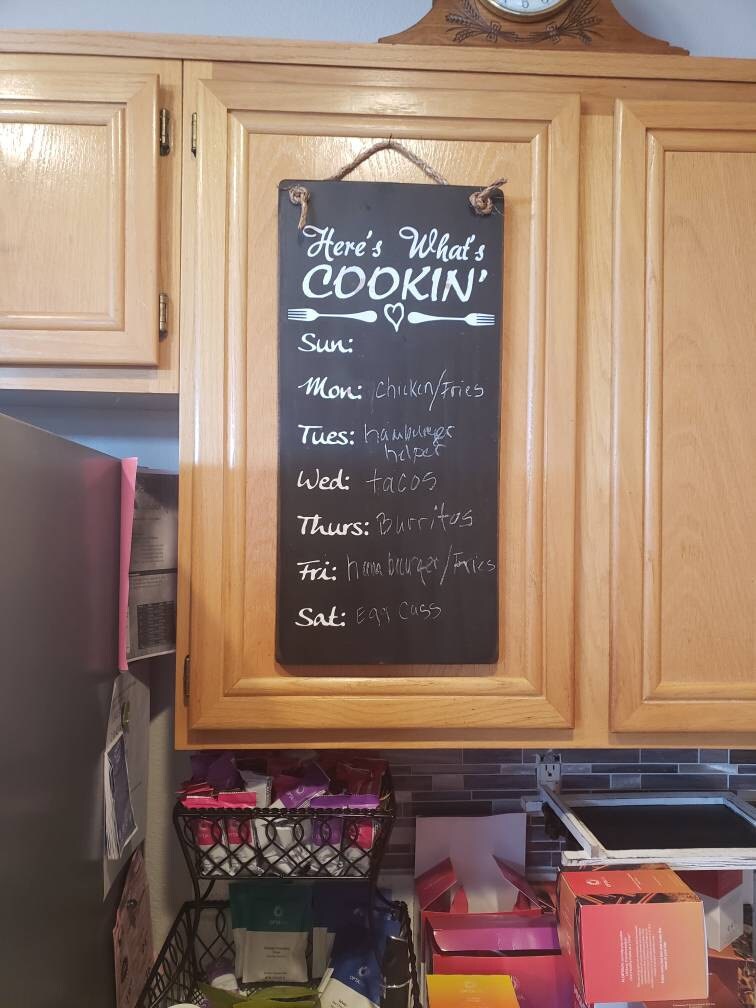 Here's What's
COOKIN'
Sun:
Mon: chicken/Fries
Tues: hamburger
helper
Wed: tacos
Thurs: Burritos
Fri: hamburger/Fries
Sat: Egg Cass